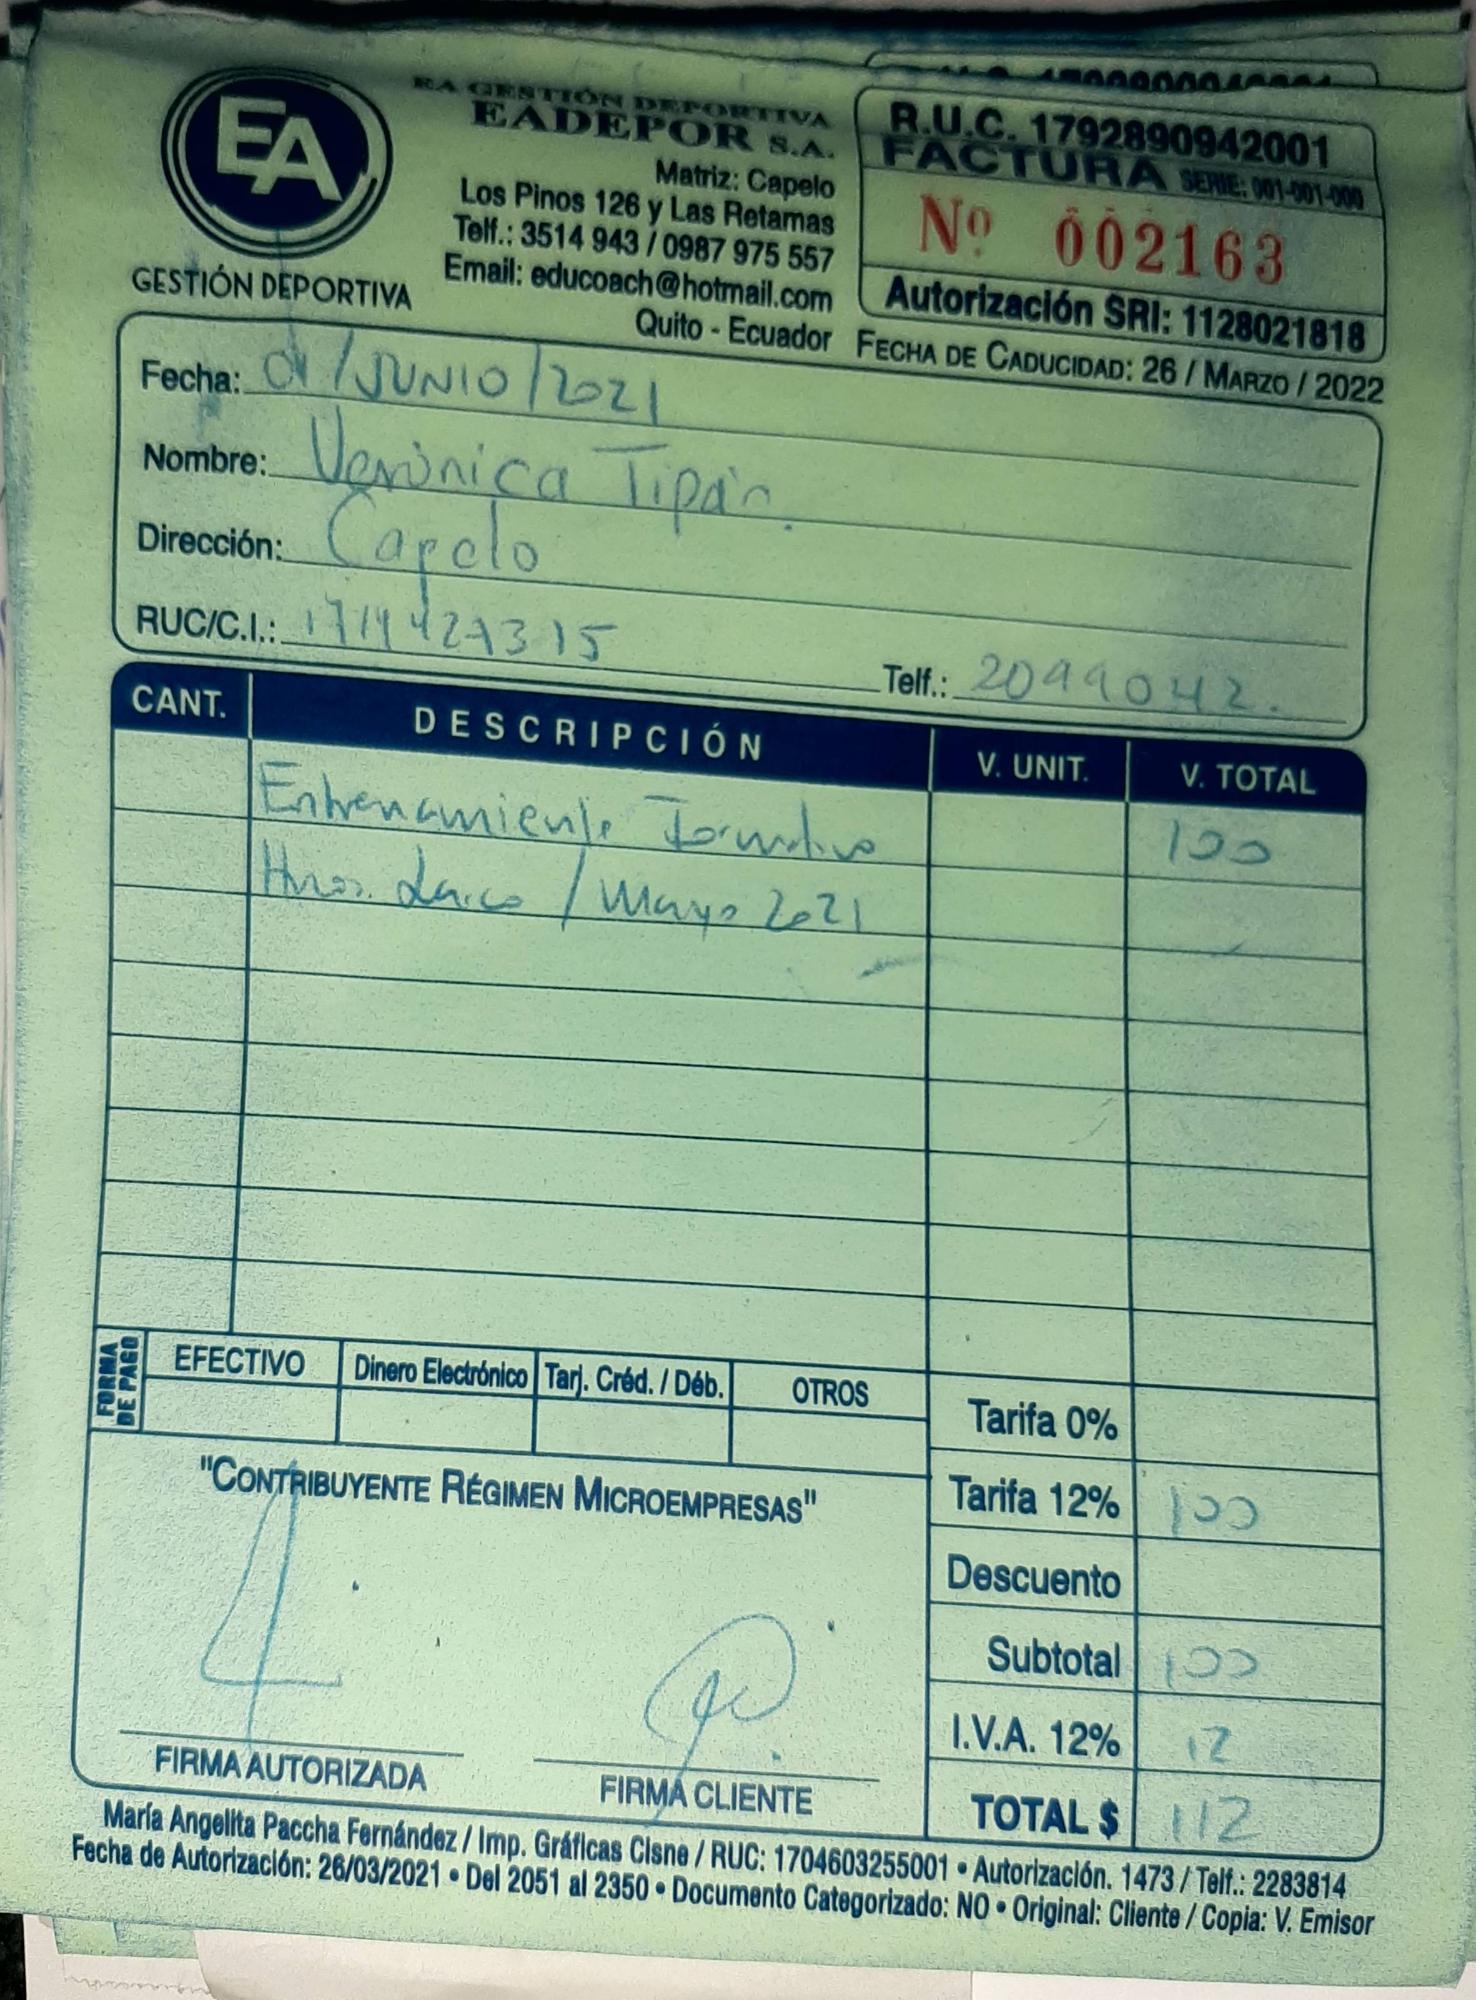 EA
GESTIÓN DEPORTIVA
EA GESTIÓN DEPORTIVA
EADEPOR S.A.
Matriz: Capelo
Los Pinos 126 y Las Retamas
Telf.: 3514 943 / 0987 975 557
Email: educoach@hotmail.com
Quito - Ecuador
R.U.C. 1792890942001
FACTURA SERIE: 001-001-000
Nº 002163
Autorización SRI: 1128021818
FECHA DE CADUCIDAD: 26 / MARZO / 2022
Fecha: 01/JUNIO/2021
Nombre: Verónica Tipán.
Dirección: Capelo
RUC/C.I.: 1714427315
Telf.: 2099042.
CANT. DESCRIPCIÓN V. UNIT. V. TOTAL
Entrenamiento Formativo 100
Hnos. / Mayo 2021
FORMA DE PAGO
EFECTIVO Dinero Electrónico Tarj. Créd. / Déb. OTROS
Tarifa 0%
"CONTRIBUYENTE RÉGIMEN MICROEMPRESAS"
Tarifa 12% 100
Descuento
Subtotal 100
I.V.A. 12% 12
TOTAL $ 112
FIRMA AUTORIZADA FIRMA CLIENTE
María Angelita Paccha Fernández / Imp. Gráficas Cisne / RUC: 1704603255001 • Autorización. 1473 / Telf.: 2283814
Fecha de Autorización: 26/03/2021 • Del 2051 al 2350 • Documento Categorizado: NO • Original: Cliente / Copia: V. Emisor